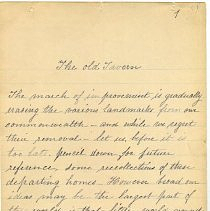 1
The old Tavern
The march of improvement is gradually
erasing the various landmarks from our
commonwealth - and while we regret
their removal - let us, before it is
too late, pencil down for future
reference, some recollections of these
departing homes. However broad our
ideas may be the largest part of